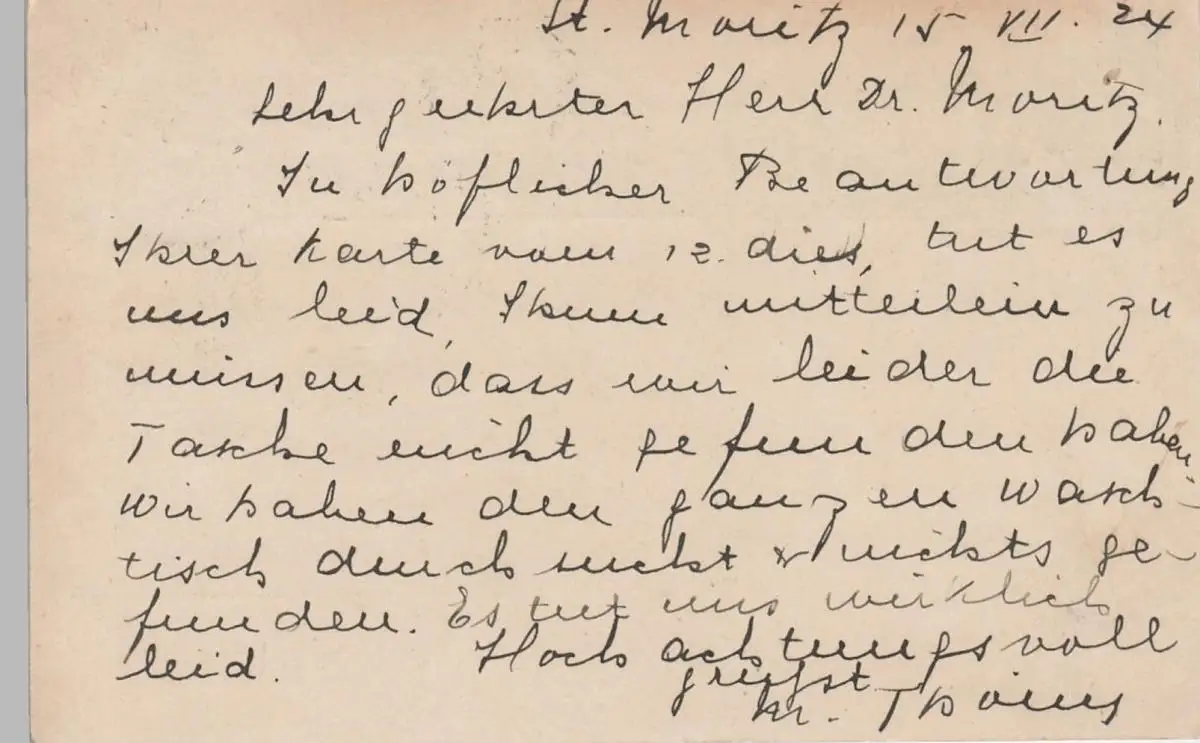 St. Moritz 15 VII. 24
Sehr geehrter Herr Dr. Moritz.
In höflicher Beantwortung
Ihrer Karte vom 12. dies, tut es
uns leid, Ihnen mitteilein zu
müssen, dass wir leider die
Tasche nicht gefunden haben.
Wir haben den ganzen Wasch-
tisch durchsucht & nichts ge-
funden. Es tut uns wirklich
leid. Hochachtungsvoll
grüsst